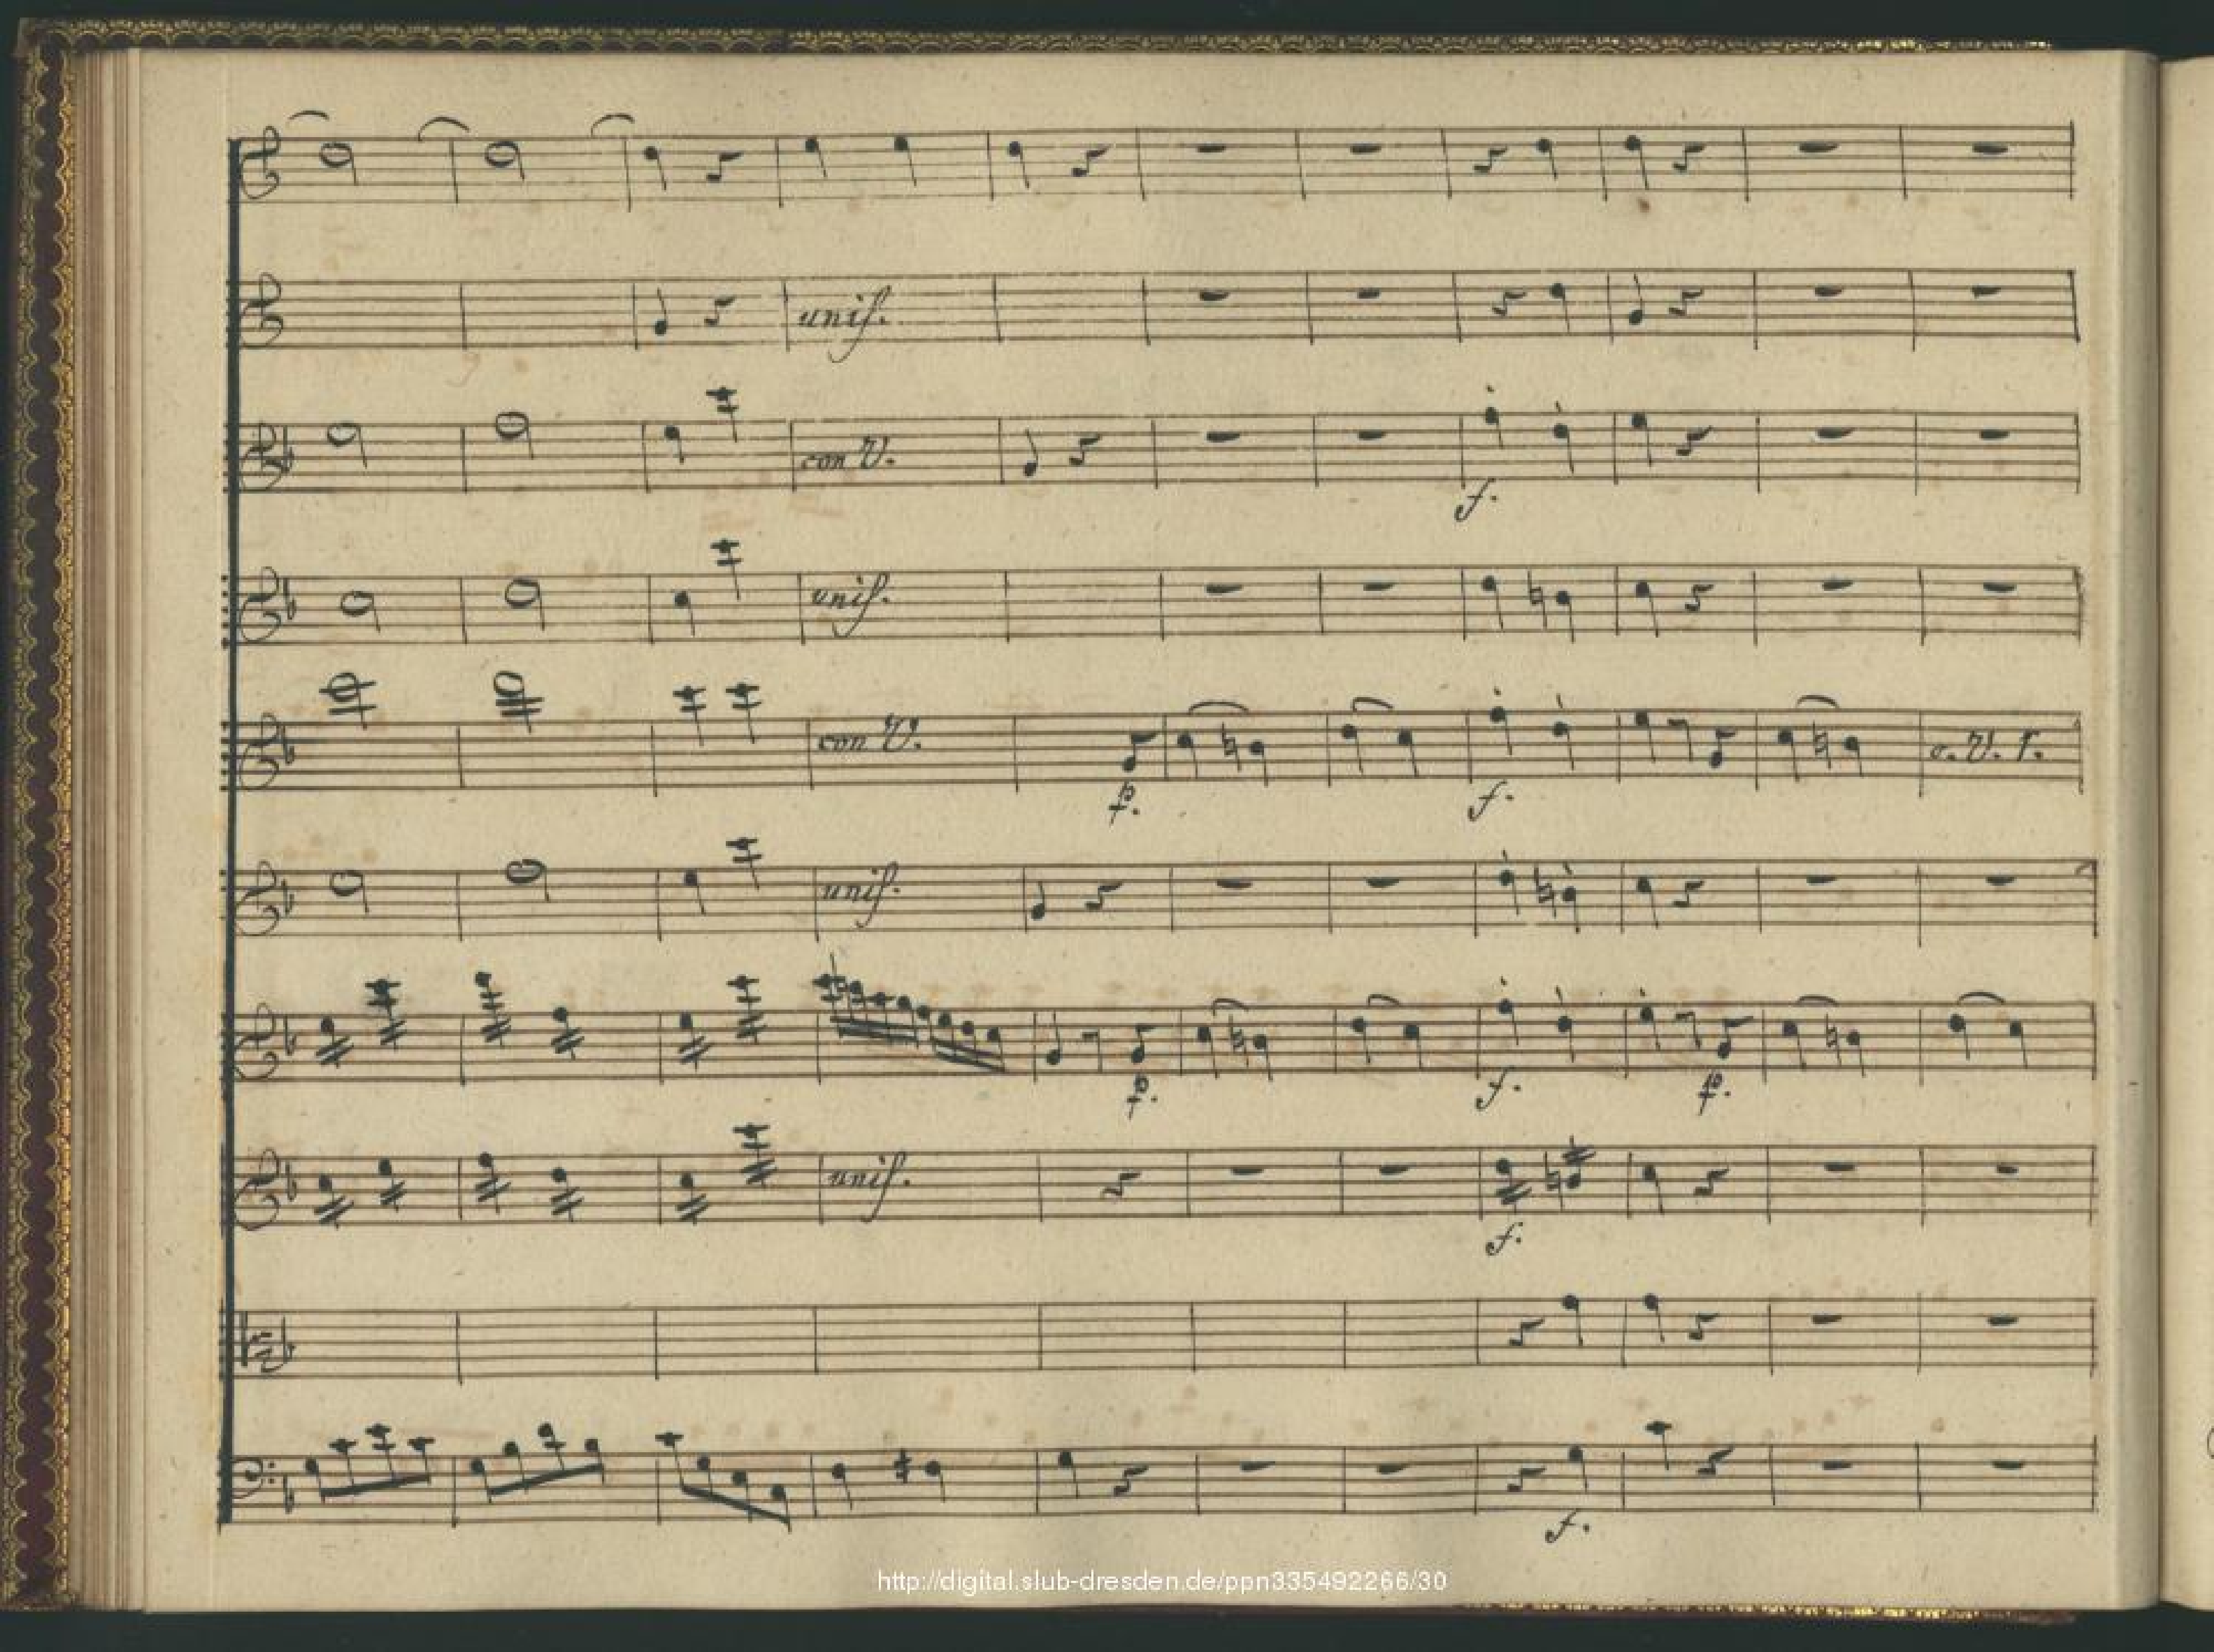 unis.
con V.
f.
unis.
con V.
p.
f.
c. V. 1.
unis.
p.
f.
p.
unis.
f.
f.
http://digital.slub-dresden.de/ppn335492266/30